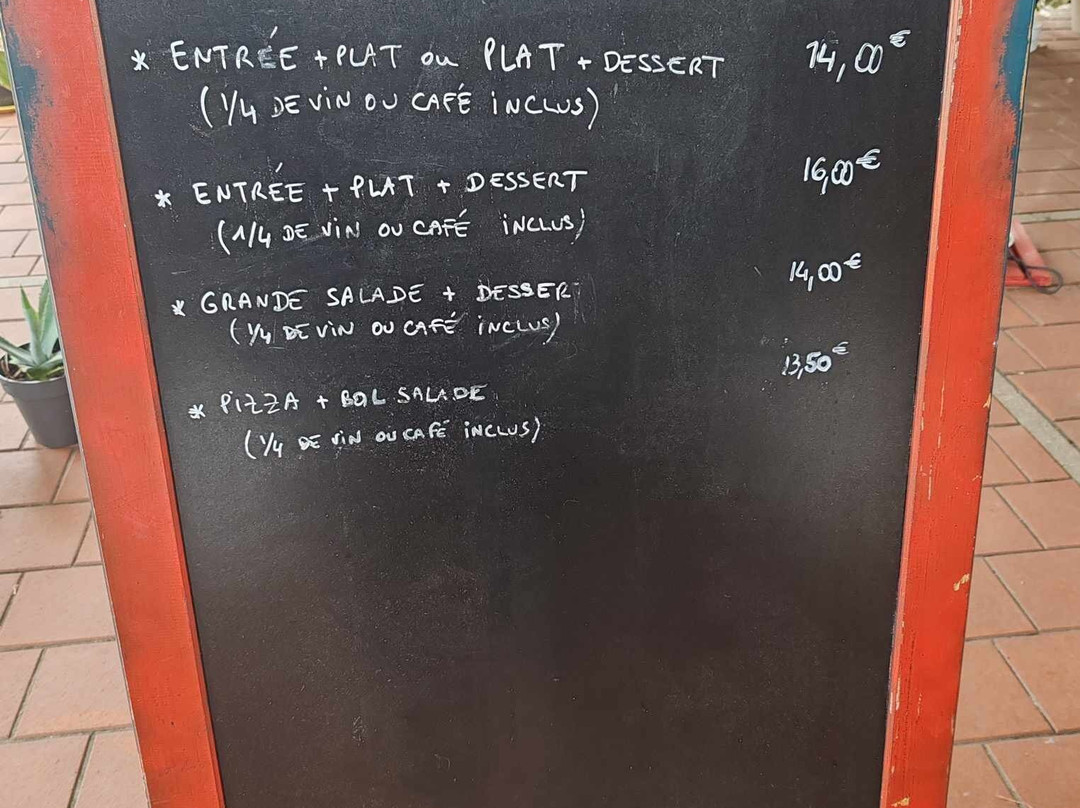 * ENTRÉE + PLAT ou PLAT + DESSERT 14,00€
(1/4 DE VIN OU CAFÉ INCLUS)
* ENTRÉE + PLAT + DESSERT 16,00€
(1/4 DE VIN OU CAFÉ INCLUS)
* GRANDE SALADE + DESSERT 14,00€
(1/4 DE VIN OU CAFÉ INCLUS)
* PIZZA + BOL SALADE 13,50€
(1/4 DE VIN OU CAFÉ INCLUS)